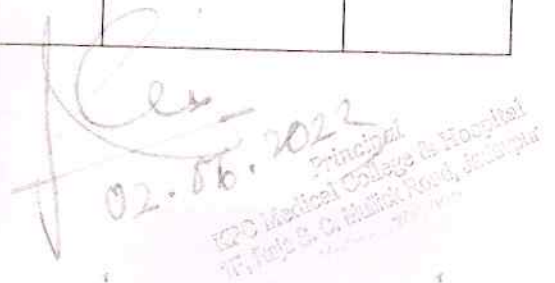 02.06.2022
Principal
KPC Medical College & Hospital
1F, Raja S. C. Mullick Road, Jadavpur